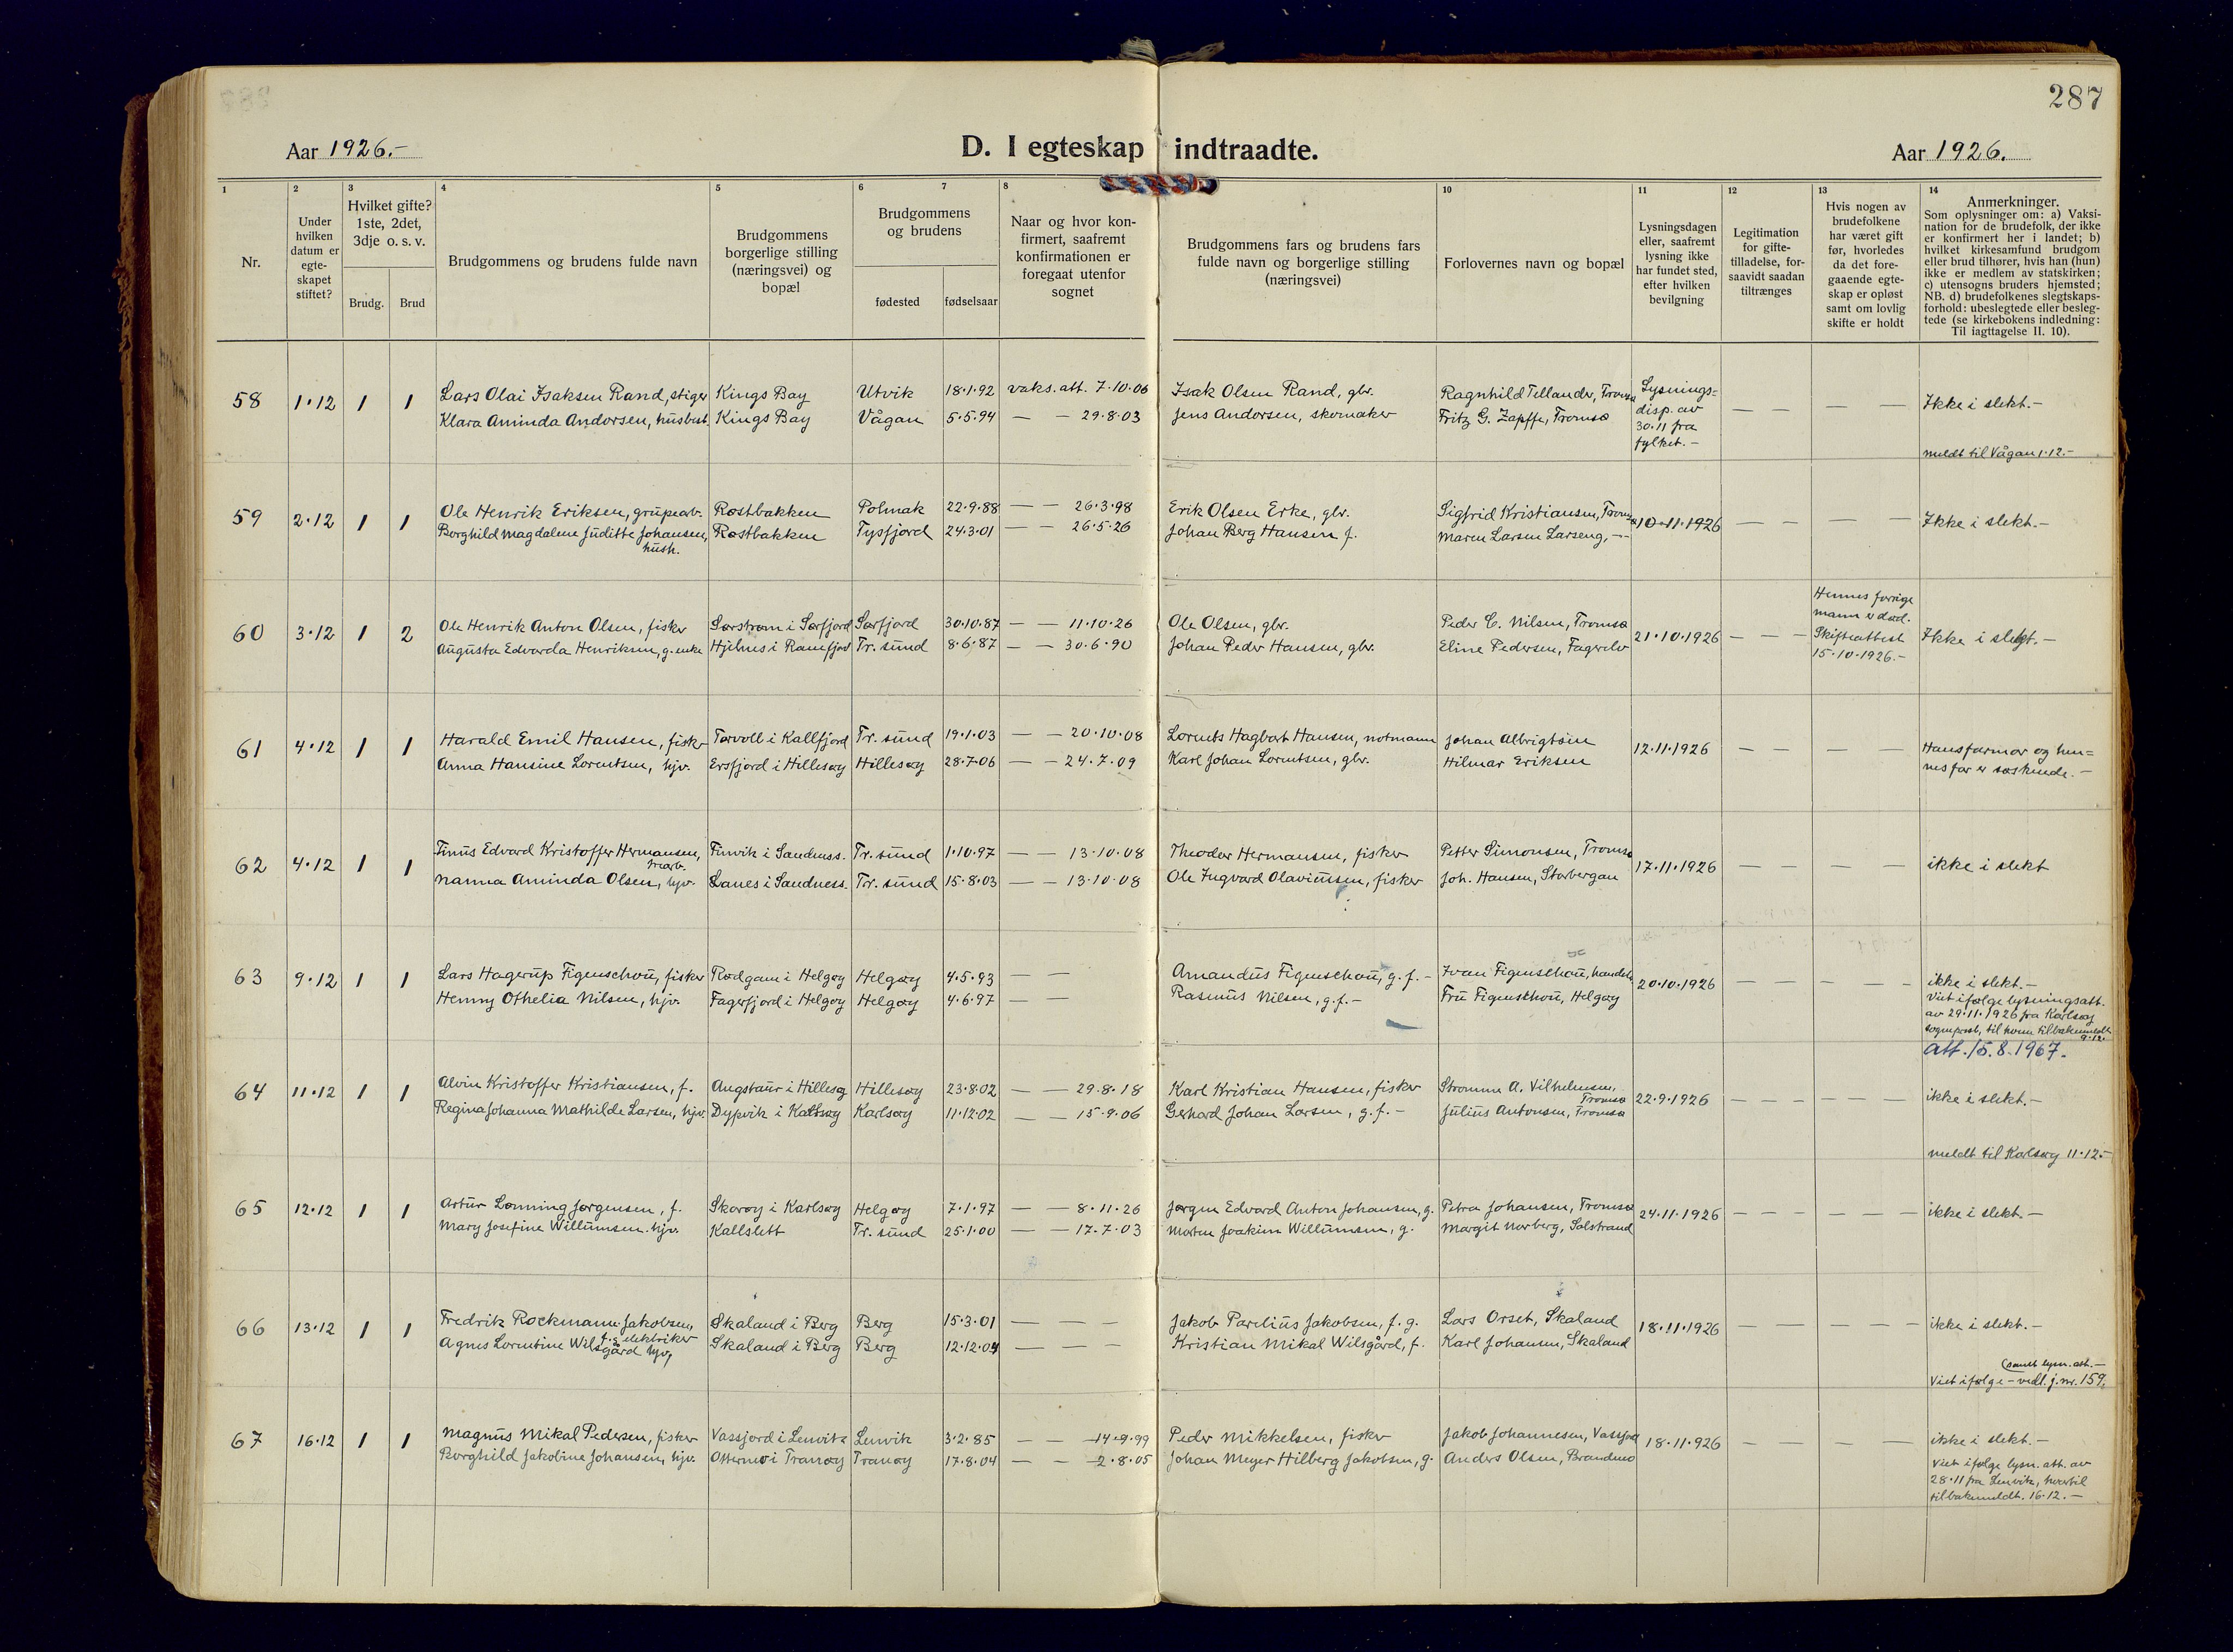 287
Aar 1926.-
D. I egteskap indtraadte.
Aar 1926.
1 2 3 4 5 6 7 8 10 11 12 13 14
Nr.
Under hvilken datum er egte-skapet stiftet?
Hvilket gifte? 1ste, 2det, 3dje o. s. v.
Brudg. Brud
Brudgommens og brudens fulde navn
Brudgommens borgerlige stilling (næringsvei) og bopæl
Brudgommens og brudens
fødested fødselsaar
Naar og hvor kon-firmert, saafremt konfirmationen er foregaat utenfor sognet
Brudgommens fars og brudens fars fulde navn og borgerlige stilling (næringsvei)
Forlovernes navn og bopæl
Lysningsdagen eller, saafremt lysning ikke har fundet sted, efter hvilken bevilgning
Legitimation for gifte-tilladelse, for-saavidt saadan tiltrænges
Hvis nogen av brudefolkene har været gift før, hvorledes da det fore-gaaende egte-skap er opløst samt om lovlig skifte er holdt
Anmerkninger.
Som oplysninger om: a) Vaksi-nation for de brudefolk, der ikke er konfirmert her i landet; b) hvilket kirkesamfund brudgom eller brud tilhører, hvis han (hun) ikke er medlem av statskirken; c) utensogns bruders hjemsted; NB. d) brudefolkenes slegtskaps-forhold: ubeslegtede eller besleg-tede (se kirkebokens indledning: Til iagttagelse II. 10).
58 1.12 1 1 Lars Olai Isaksen Rand, stiger Kings Bay Utvik 18.1.92 vaks. att. 7.10.06 Isak Olsen Rand, gbr. Ragnhild Tellander, Tromsø Lysnings-
Klara Aminda Andorsen, husbest. Kings Bay Vågan 5.5.94 — — 29.8.03 Jens Andorsen, skomaker Fritz G. Zapffe, Tromsø disp. av — — — — Ikke i slekt.-
30.11 fra
fylket.-
meldt til Vågan 1.12.-
59 2.12 1 1 Ole Henrik Eriksen, grubearb. Røstbakken Polmak 22.9.88 — — 26.3.98 Erik Olsen Erke, gbr. Sigfrid Kristiansen, Tromsø 10.11.1926 — — — — Ikke i slekt.-
Borghild Magdalene Juditte Johansen, Røstbakken Tysfjord 24.3.01 — — 26.5.26 Johan Berg Hansen f. Maren Larsen Larseng, -"-
hush.
60 3.12 1 2 Ole Henrik Anton Olsen, fisker Sørstrøm i Sørfjord Sørfjord 30.10.87 — — 11.10.26 Ole Olsen, gbr. Peder C. Nilsen, Tromsø 21.10.1926 — — —
Augusta Edvarda Henriksen, g. enke Hjelnes i Ramfjord Tr. sund 8.6.87 — — 30.6.90 Johan Peder Hansen, gbr. Eline Pedersen, Fagerelv
Hennes forrige
mann er død.
Skifteattest
15.10.1926.-
Ikke i slegt.-
61 4.12 1 1 Harald Emil Hansen, fisker Torvoll i Kallfjord Tr. sund 19.1.03 — — 20.10.08 Lorents Hagbart Hansen, notmann Johan Albrigtsen 12.11.1926 — — — — Hans farmor og hen=
Anna Hansine Lorentsen, hjv. Ersfjord i Hillesøy Hillesøy 28.7.06 — — 24.7.09 Karl Johan Lorentsen, gbr. Hilmar Eriksen nes far er søskende.-
62 4.12 1 1 Tinus Edvard Kristoffer Hermansen, Finvik i Sandness. Tr. sund 1.10.97 — — 13.10.08 Theodor Hermansen, fisker Petter Simonsen, Tromsø 17.11.1926 — — — — ikke i slekt
Nanna Aminda Olsen, hjv. Lanes i Sandness. Tr. sund 15.8.03 — — 13.10.08 Ole Ingvard Olaviussen, fisker Joh. Hansen, Storbergan
63 9.12 1 1 Lars Hagerup Figenschou, fisker Rødgam i Helgøy Helgøy 4.5.93 — — Amandus Figenschou, g. f.- Ivan Figenschou, handels 20.10.1926 — — — — — ikke i slekt.-
Henny Othelia Nilsen, hjv. Fagerfjord i Helgøy Helgøy 4.6.97 — — Rasmus Nilsen, g.f.- Fru Figenschou, Helgøy
Viet ifølge lysningsatt.
av 29.11.1926 fra Karlsøy
sogneprest, til hvem tilbakemeldt
9.12.
Att. 15.8.1967.
64 11.12 1 1 Alvin Kristoffer Kristiansen, f. Angstaur i Hillesøy Hillesøy 23.8.02 — — 29.8.18 Karl Kristian Hansen, fisker Strømme A. Vilhelmsen, Tromsø 22.9.1926 — — — — — — ikke i slekt.-
Regina Johanna Mathilde Larsen, hjv. Dypvik i Karlsøy Karlsøy 11.12.02 — — 15.9.06 Gerhard Johan Larsen, g.f.- Julius Antonsen, Tromsø
meldt til Karlsøy 11.12.-
65 12.12 1 1 Artur Lønning Jørgensen, f. Skorøy i Karlsøy Helgøy 7.1.97 — — 8.11.26 Jørgen Edvard Anton Johansen, g. Petra Johansen, Tromsø 24.11.1926 — — — — — ikke i slekt.-
Mary Josefine Willumsen. hjv. Kallslett Tr. sund 25.1.00 — — 17.7.03 Morten Joakim Willumsen, g. Margit Norberg, Solstrand
66 13.12 1 1 Fredrik Rockmann Jakobsen, Skaland i Berg Berg 15.3.01 — — — Jakob Parelius Jakobsen, f. g. Lars Orset, Skaland 18.11.1926 — — — — — ikke i slekt.-
f. g. elektriker
Agnes Lorentine Wilsgård hjv. Skaland i Berg Berg 12.12.04 — — — Kristian Mikal Wilsgård, f. Karl Johansen, Skaland
(samt lysn. att.-
Viet ifølge - vedl. j. nr. 159.
67 16.12 1 1 Magnus Mikal Pedersen, fisker Vassjord i Lenvik Lenvik 3.2.85 — — 14.9.99 Peder Mikkelsen, fisker Jakob Johannesen, Vassjord 18.11.926 — — — — ikke i slekt.-
Borghild Jakobine Johansen, hjv. Otternes i Tranøy Tranøy 17.8.04 — — 2.8.05 Johan Meyer Hilberg Jakobsen, g. Anders Olsen, Brandmo
Viet ifølge lysn. att. av
28.11 fra Lenvik, hvortil
tilbakemeldt. 16.12.-